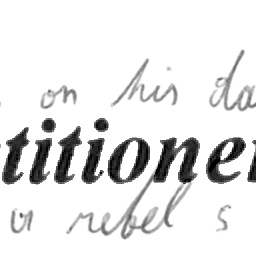 on his da
titione
rebel s